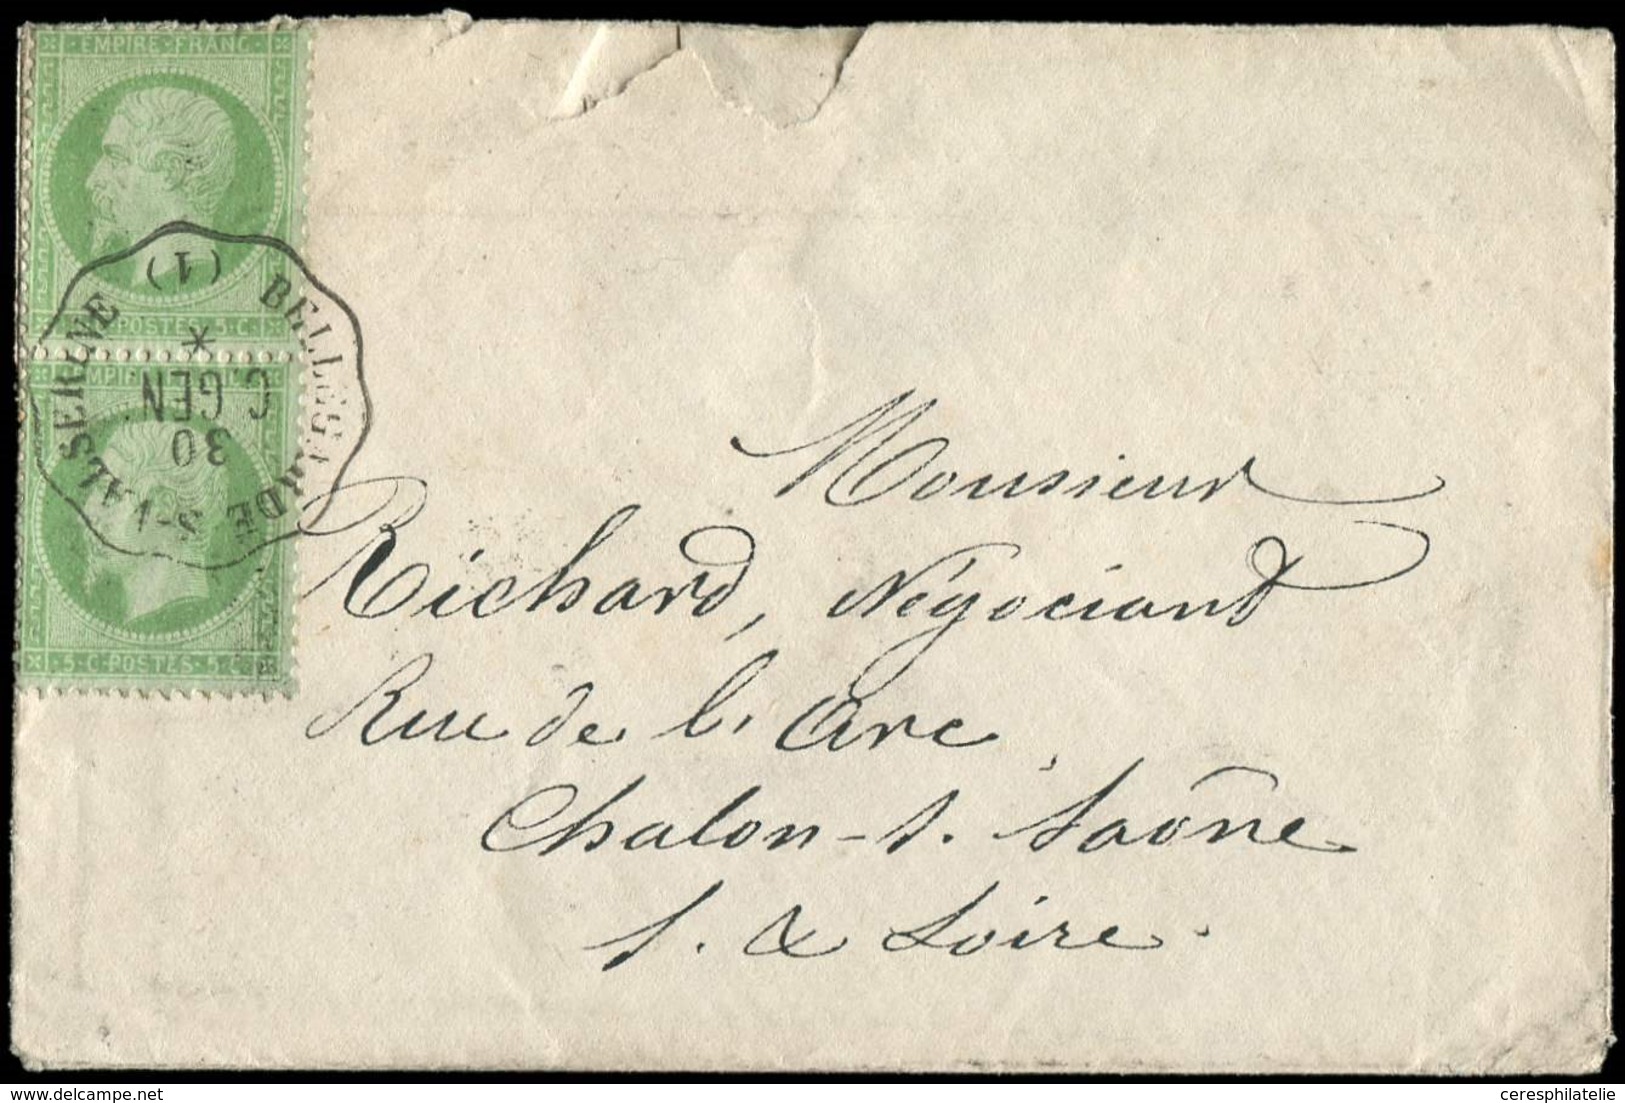 EMPIRE FRANC
C POSTES 5 C.
5 C POSTES 5 C
BELLEGARDE S-VALSERINE (1)
*
C.GEN
30
Monsieur
Richard, Négociant
Rue de l'Arc
Chalon-s. Saône
S. & Loire.
delcampe.net
ceresphilatelie